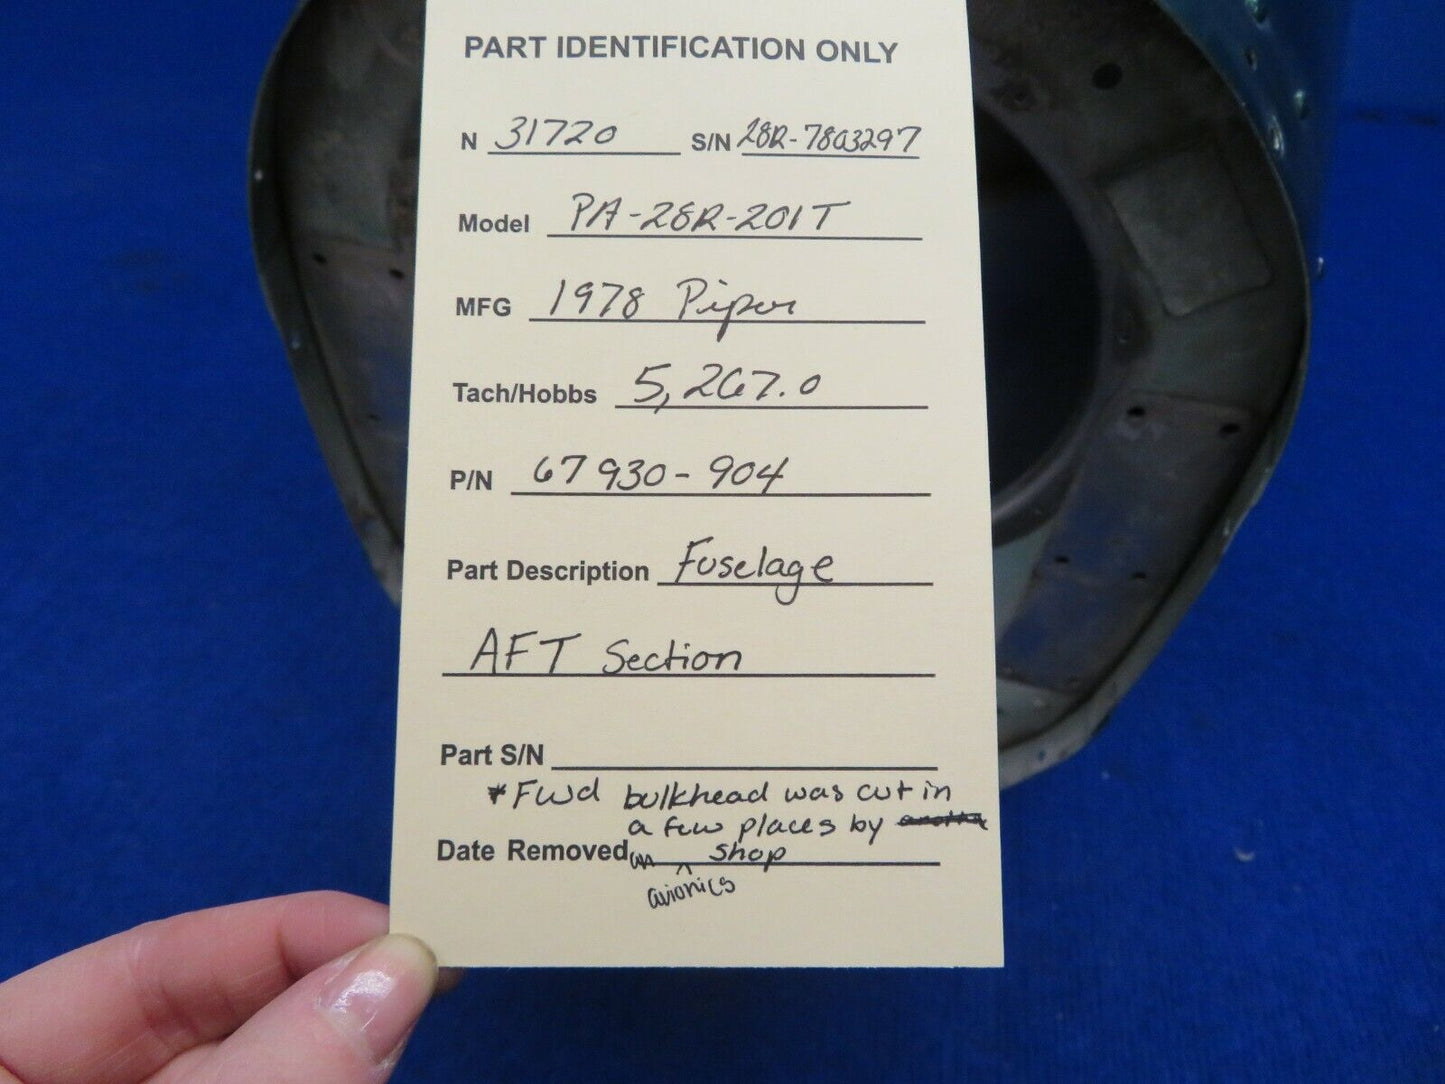 PART IDENTIFICATION ONLY
N 31720 S/N 28R-7803297
Model PA-28R-201T
MFG 1978 Piper
Tach/Hobbs 5,267.0
P/N 67930-904
Part Description Fuselage
AFT Section
Part S/N
*Fwd bulkhead was cut in
a few places by
Date Removed an shop
avionics